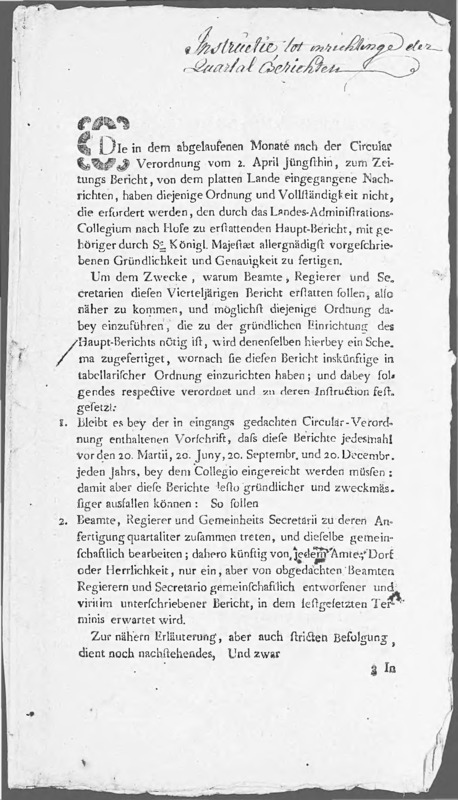 Instructie tot inrichtinge der
Quartal Berichten
DIe in dem abgelaufenen Monate nach der Circular
Verordnung vom 2. April jüngſthin, zum Zei-
tungs Bericht, von dem platten Lande eingegangene Nach-
richten, haben diejenige Ordnung und Vollſtändigkeit nicht,
die erfordert werden, den durch das Landes-Adminiſtrations-
Collegium nach Hofe zu erſtattenden Haupt-Bericht, mit ge-
höriger durch Se Königl. Majeſtæt allergnädigſt vorgeſchrie-
benen Gründlichkeit und Genauigkeit zu fertigen.
Um dem Zwecke, warum Beamte, Regierer und Se-
cretarien dieſen Vierteljärigen Bericht erſtatten ſollen, alſo
näher zu kommen, und möglichſt diejenige Ordnung da-
bey einzuführen, die zu der gründlichen Einrichtung des
Haupt-Berichts nötig iſt, wird denenſelben hierbey ein Sche-
ma zugefertiget, wornach ſie dieſen Bericht inskünftige in
tabellariſcher Ordnung einzurichten haben; und dabey fol-
gendes reſpective verordnet und zu deren Inſtruction feſt-
geſetzt:
1. Bleibt es bey der in eingangs gedachten Circular-Verord-
nung enthaltenen Vorſchrift, daſs dieſe Berichte jedesmahl
vor den 20. Martii, 20. Juny, 20. Septembr. und 20. Decembr.
jeden Jahrs, bey dem Collegio eingereicht werden müſsen;
damit aber dieſe Berichte deſto gründlicher und zweckmäs-
ſiger ausfallen können: So ſollen
2. Beamte, Regierer und Gemeinheits Secretarii zu deren An-
fertigung quartaliter zuſammen treten, und dieſelbe gemein-
ſchaftlich bearbeiten; dahero künftig von jedem Amte, Dorf
oder Herrlichkeit, nur ein, aber von obgedachten Beamten
Regierern und Secretario gemeinſchaftlich entworfener und
viritim unterſchriebener Bericht, in dem feſtgeſetzten Ter-
minis erwartet wird.
Zur nähern Erläuterung, aber auch ſtricten Befolgung,
dient noch nachſtehendes, Und zwar
3 In